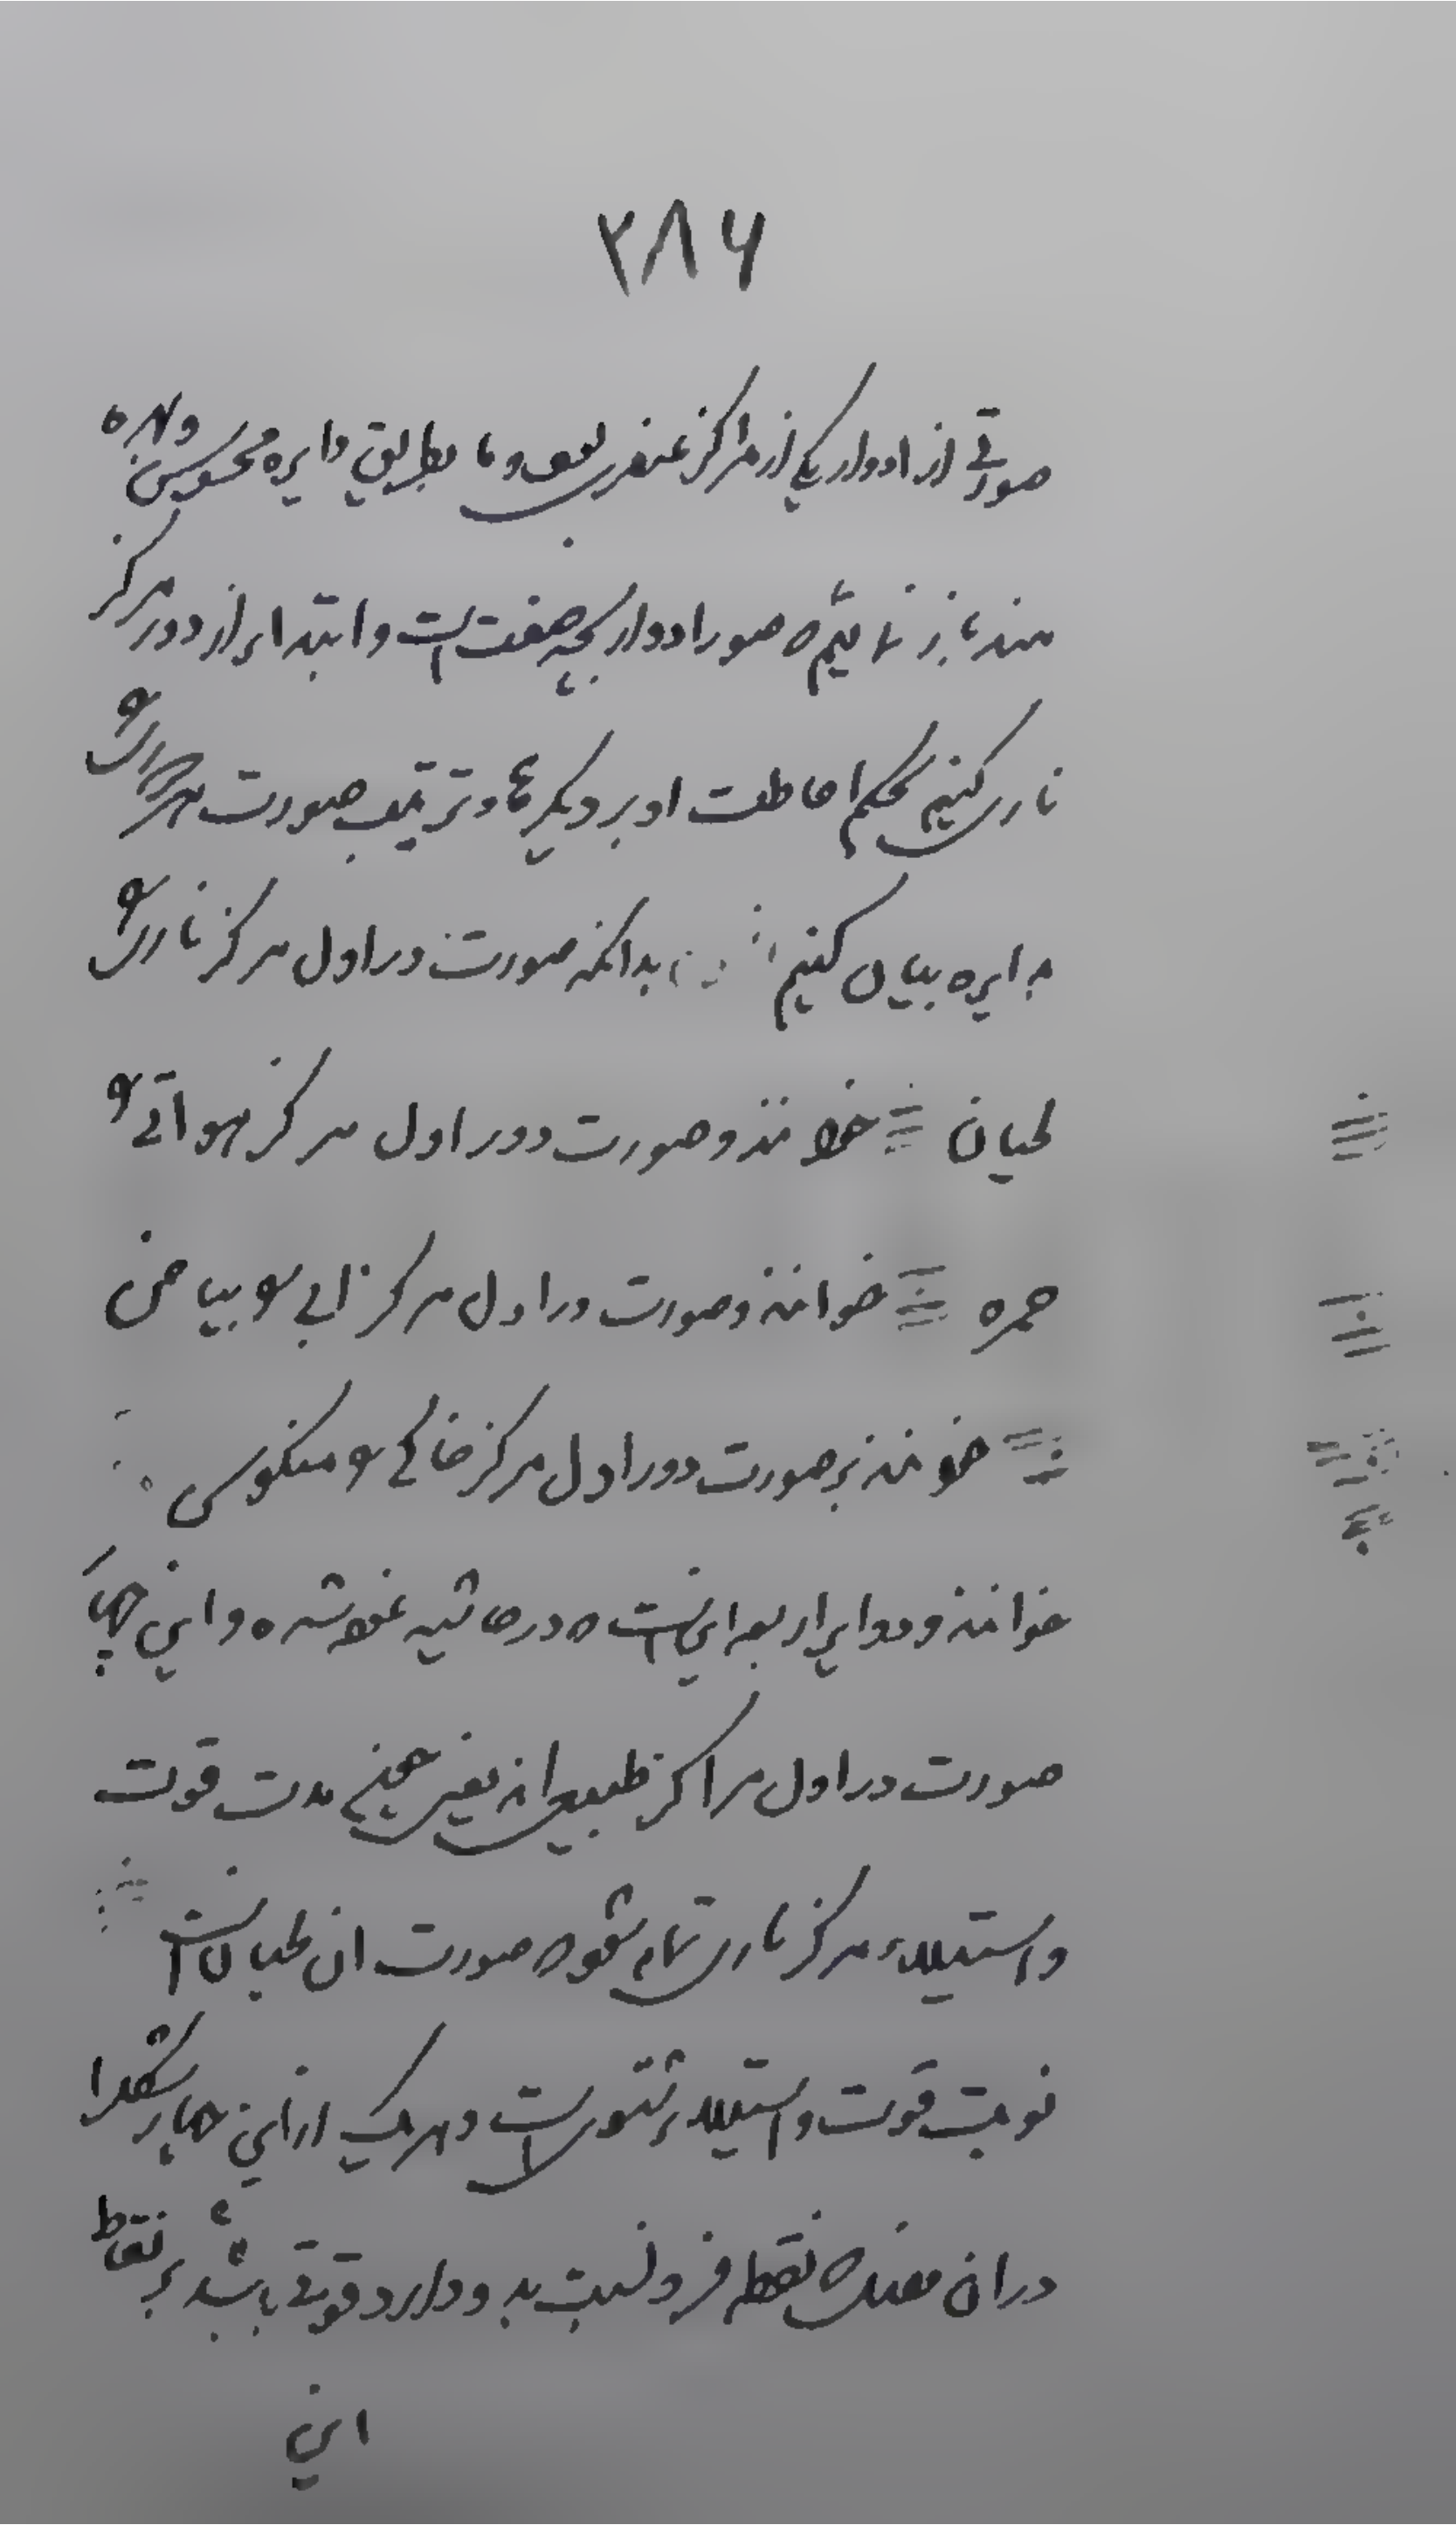 ۲۸۶
صورتی از ادوار یکی از مراکز عنصری بطریق دایره
باز نمائیم که صور ادوار بچه صفت است و ابتدا از دور مرکز
ناری کنیم بحکم احاطت او بر دیگرها و ترتیب صورت
دایره بیان کنیم بدانکه صورت دور اول مرکز ناری را
لحیان خوانند و صورت دور اول مرکز هوائی را
حمره خوانند و صورت دور اول مرکز ابی را بیاض
خوانند و صورت دور اول مرکز خاکی را منکوس
خوانند و دوایر اربعه اینست که در حاشیه نموده شده و این چهار
صورت دور اول مراکز طبیعی اند یعنی چون مدت قوت
و استیلاء مرکز ناری تمام شود که صورت ان لحیان است
نوبت قوت و استیلاء است و هر یک از این چهار شکل را
در ان نقطه فرد نسبت بدو دارد قوتی باشد بر نقاط
این